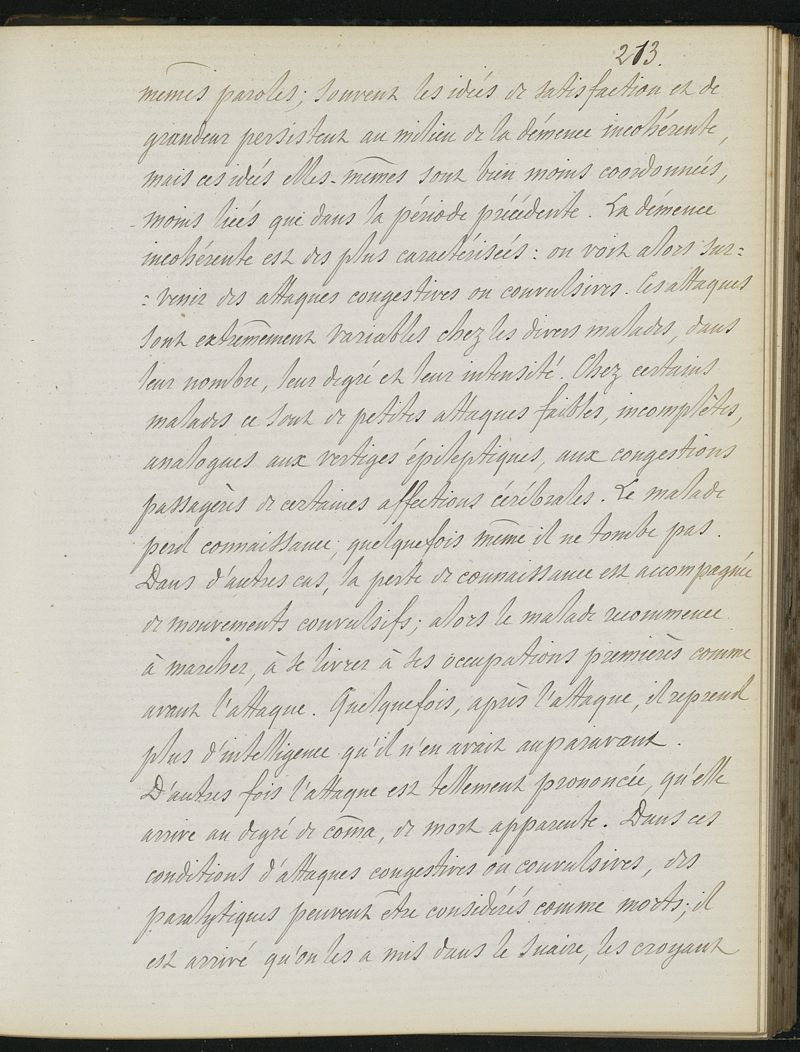 213.
mêmes paroles; souvent les idées de satisfaction et de
grandeur persistent au milieu de la démence incohérente,
mais ces idées elles-mêmes sont bien moins coordonnées,
moins liées que dans la période précédente. La démence
incohérente est des plus caractérisées: on voit alors sur=
=venir des attaques congestives ou convulsives. Ces attaques
sont extrêmement variables chez les divers malades, dans
leur nombre, leur degré et leur intensité. Chez certains
malades ce sont de petites attaques faibles, incomplètes,
analogues aux vertiges épileptiques, aux congestions
passagères de certaines affections cérébrales. Le malade
perd connaissance, quelquefois même il ne tombe pas.
Dans d'autres cas, la perte de connaissance est accompagnée
de mouvements convulsifs; alors le malade recommence
à marcher, à se livrer à ses occupations premières comme
avant l'attaque. Quelquefois, après l'attaque, il reprend
plus d'intelligence qu'il n'en avait auparavant.
D'autres fois l'attaque est tellement prononcée, qu'elle
arrive au degré de côma, de mort apparente. Dans ces
conditions d'attaques congestives ou convulsives, des
paralytiques peuvent être considérés comme morts; il
est arrivé qu'on les a mis dans le suaire, les croyant